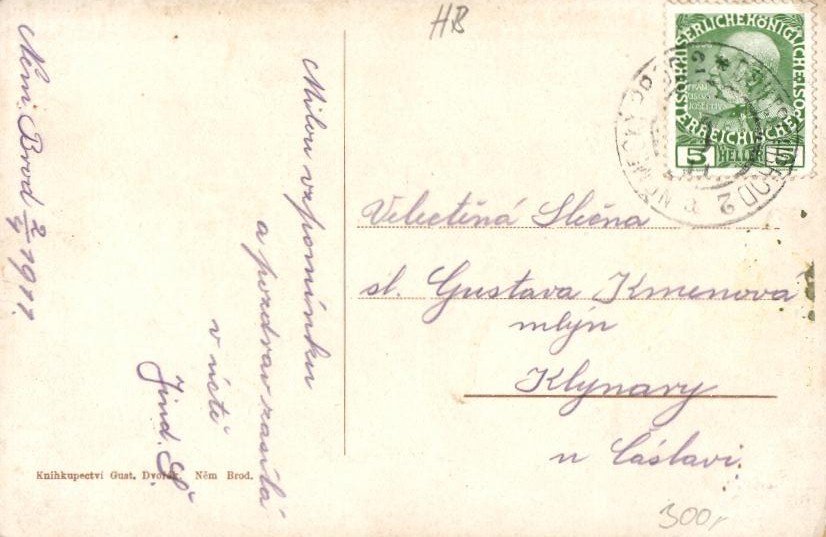 HB
Něm. Brod 2/4 1911.
Milou vzpomínku
a pozdrav zasílá
v úctě
Jind. Š
KAISERLICHE KÖNIGLICHE
ÖSTERREICHISCHE POST
5 HELLER 5
Velectěná Slečna
sl. Gustava Kmenova
mlýn
Klynavy
u Čáslavi.
Knihkupectví Gust. Dvořák. Něm Brod.
300,-